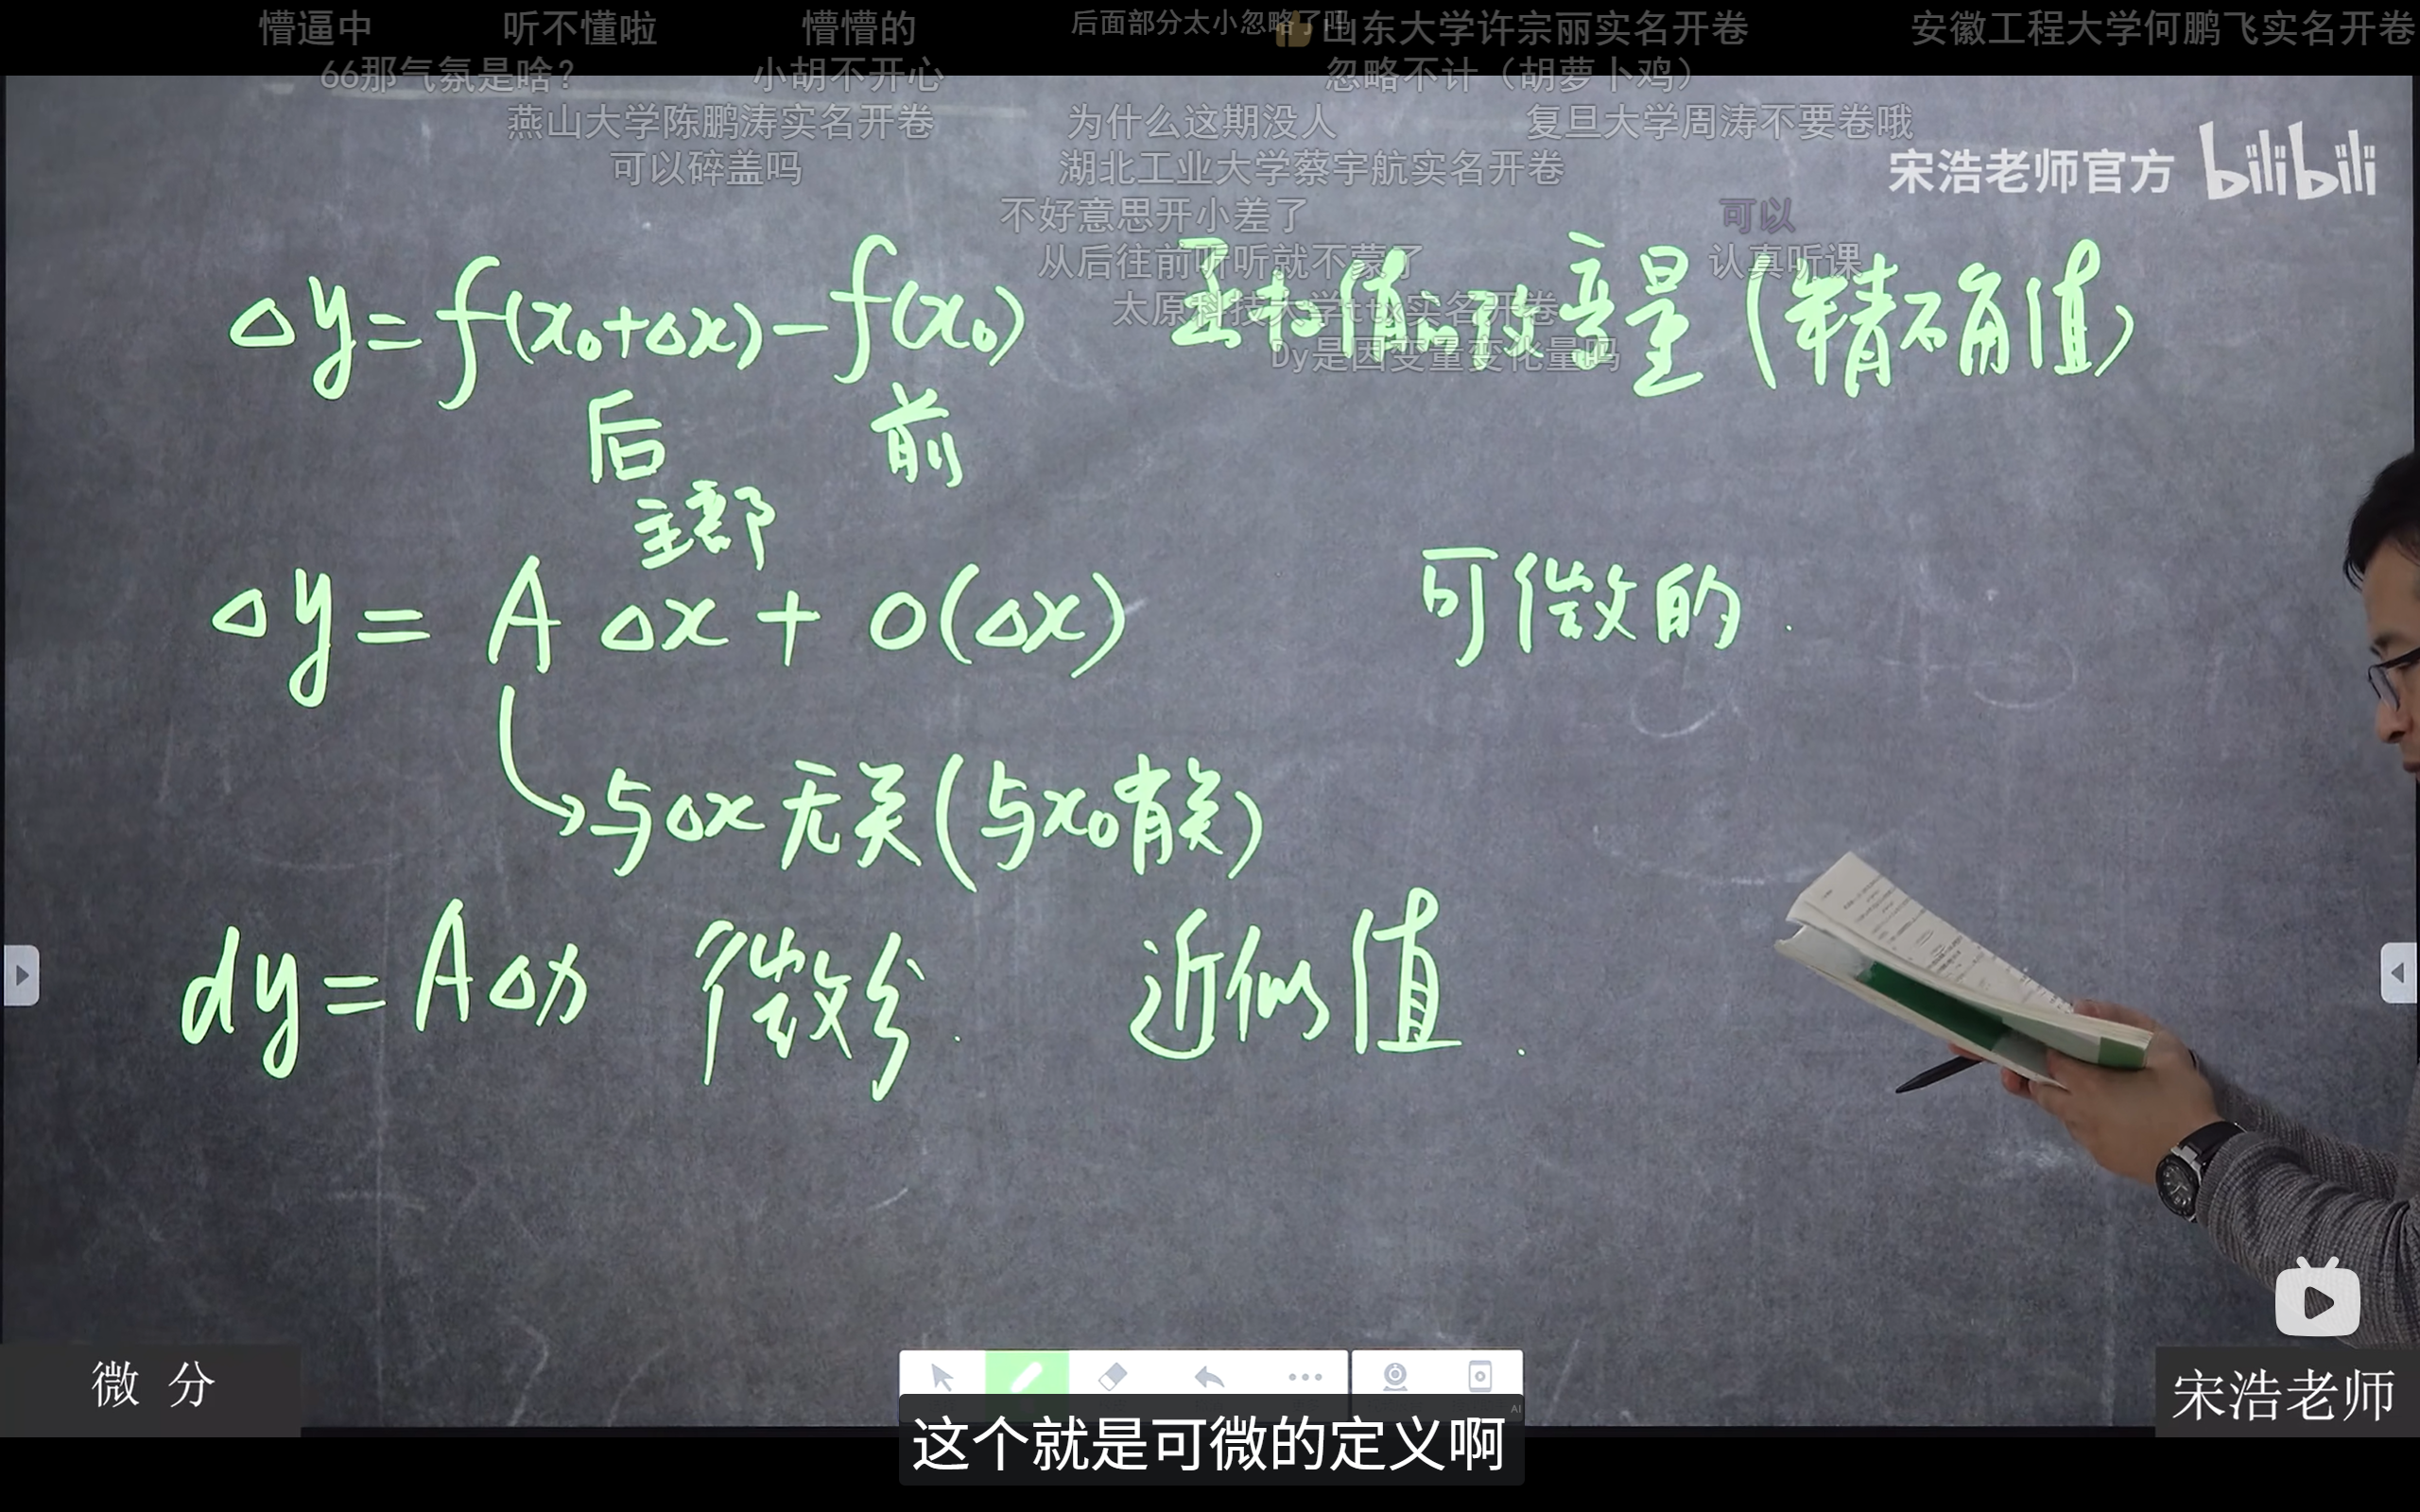 懵逼中 听不懂啦 懵懵的 后面部分太小忽略了吗 山东大学许宗丽实名开卷 安徽工程大学何鹏飞实名开卷
66那气氛是啥? 小胡不开心 忽略不计（胡萝卜鸡）
燕山大学陈鹏涛实名开卷 为什么这期没人 复旦大学周涛不要卷哦
可以碎盖吗 湖北工业大学蔡宇航实名开卷
宋浩老师官方 bilibili
不好意思开小差了 可以
从后往前听听就不蒙了 认真听课
太原科技大学ttx实名开卷
Dy是因变量变化量吗
Δy=f(x₀+Δx)-f(x₀) 函数值的改变量 (精确值)
后 前
主部
Δy= A Δx + o(Δx) 可微的.
与Δx无关(与x₀有关)
dy=AΔx 微分. 近似值.
微 分
宋浩老师
AI
这个就是可微的定义啊